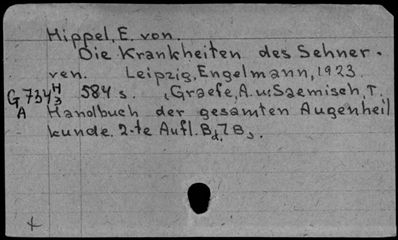 Hippel, E. von.
Die Krankheiten des Sehner-
ven. Leipzig, Engelmann, 1923.
G 734 H/3 584 s. (Graefe, A. u. Saemisch, T.
A Handbuch der gesamten Augenheil
kunde. 2-te Aufl. Bd. 7 B